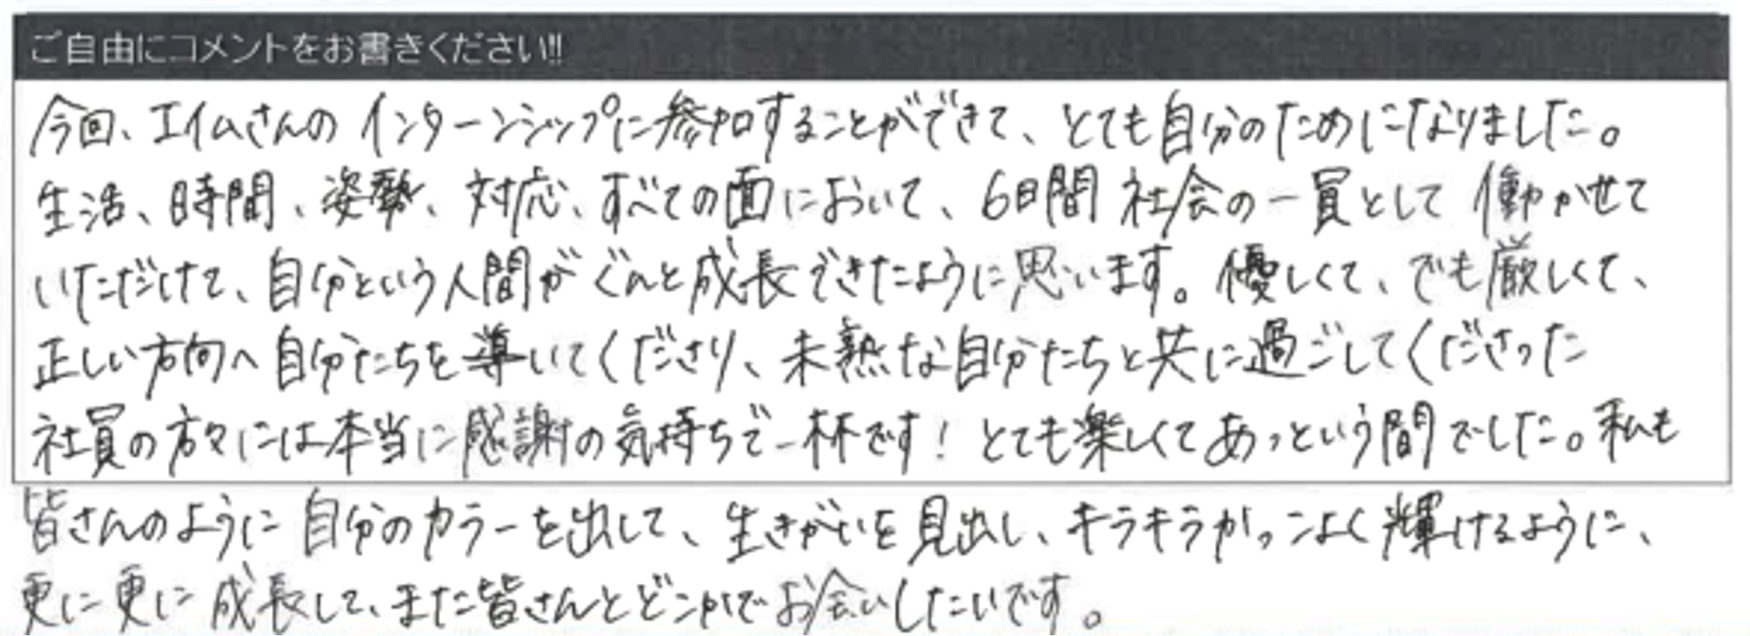 ご自由にコメントをお書きください!!
今回、エイムさんのインターンシップに参加することができて、とても自分のためになりました。
生活、時間、姿勢、対応、すべての面において、6日間社会の一員として働かせて
いただけて、自分という人間がぐんと成長できたように思います。優しくて、でも厳しくて、
正しい方向へ自分たちを導いてくださり、未熟な自分たちと共に過ごしてくださった
社員の方々には本当に感謝の気持ちで一杯です！とても楽しくてあっという間でした。私も
皆さんのように自分のカラーを出して、生きがいを見出し、キラキラかっこよく輝けるように、
更に更に成長して、また皆さんとどこかでお会いしたいです。